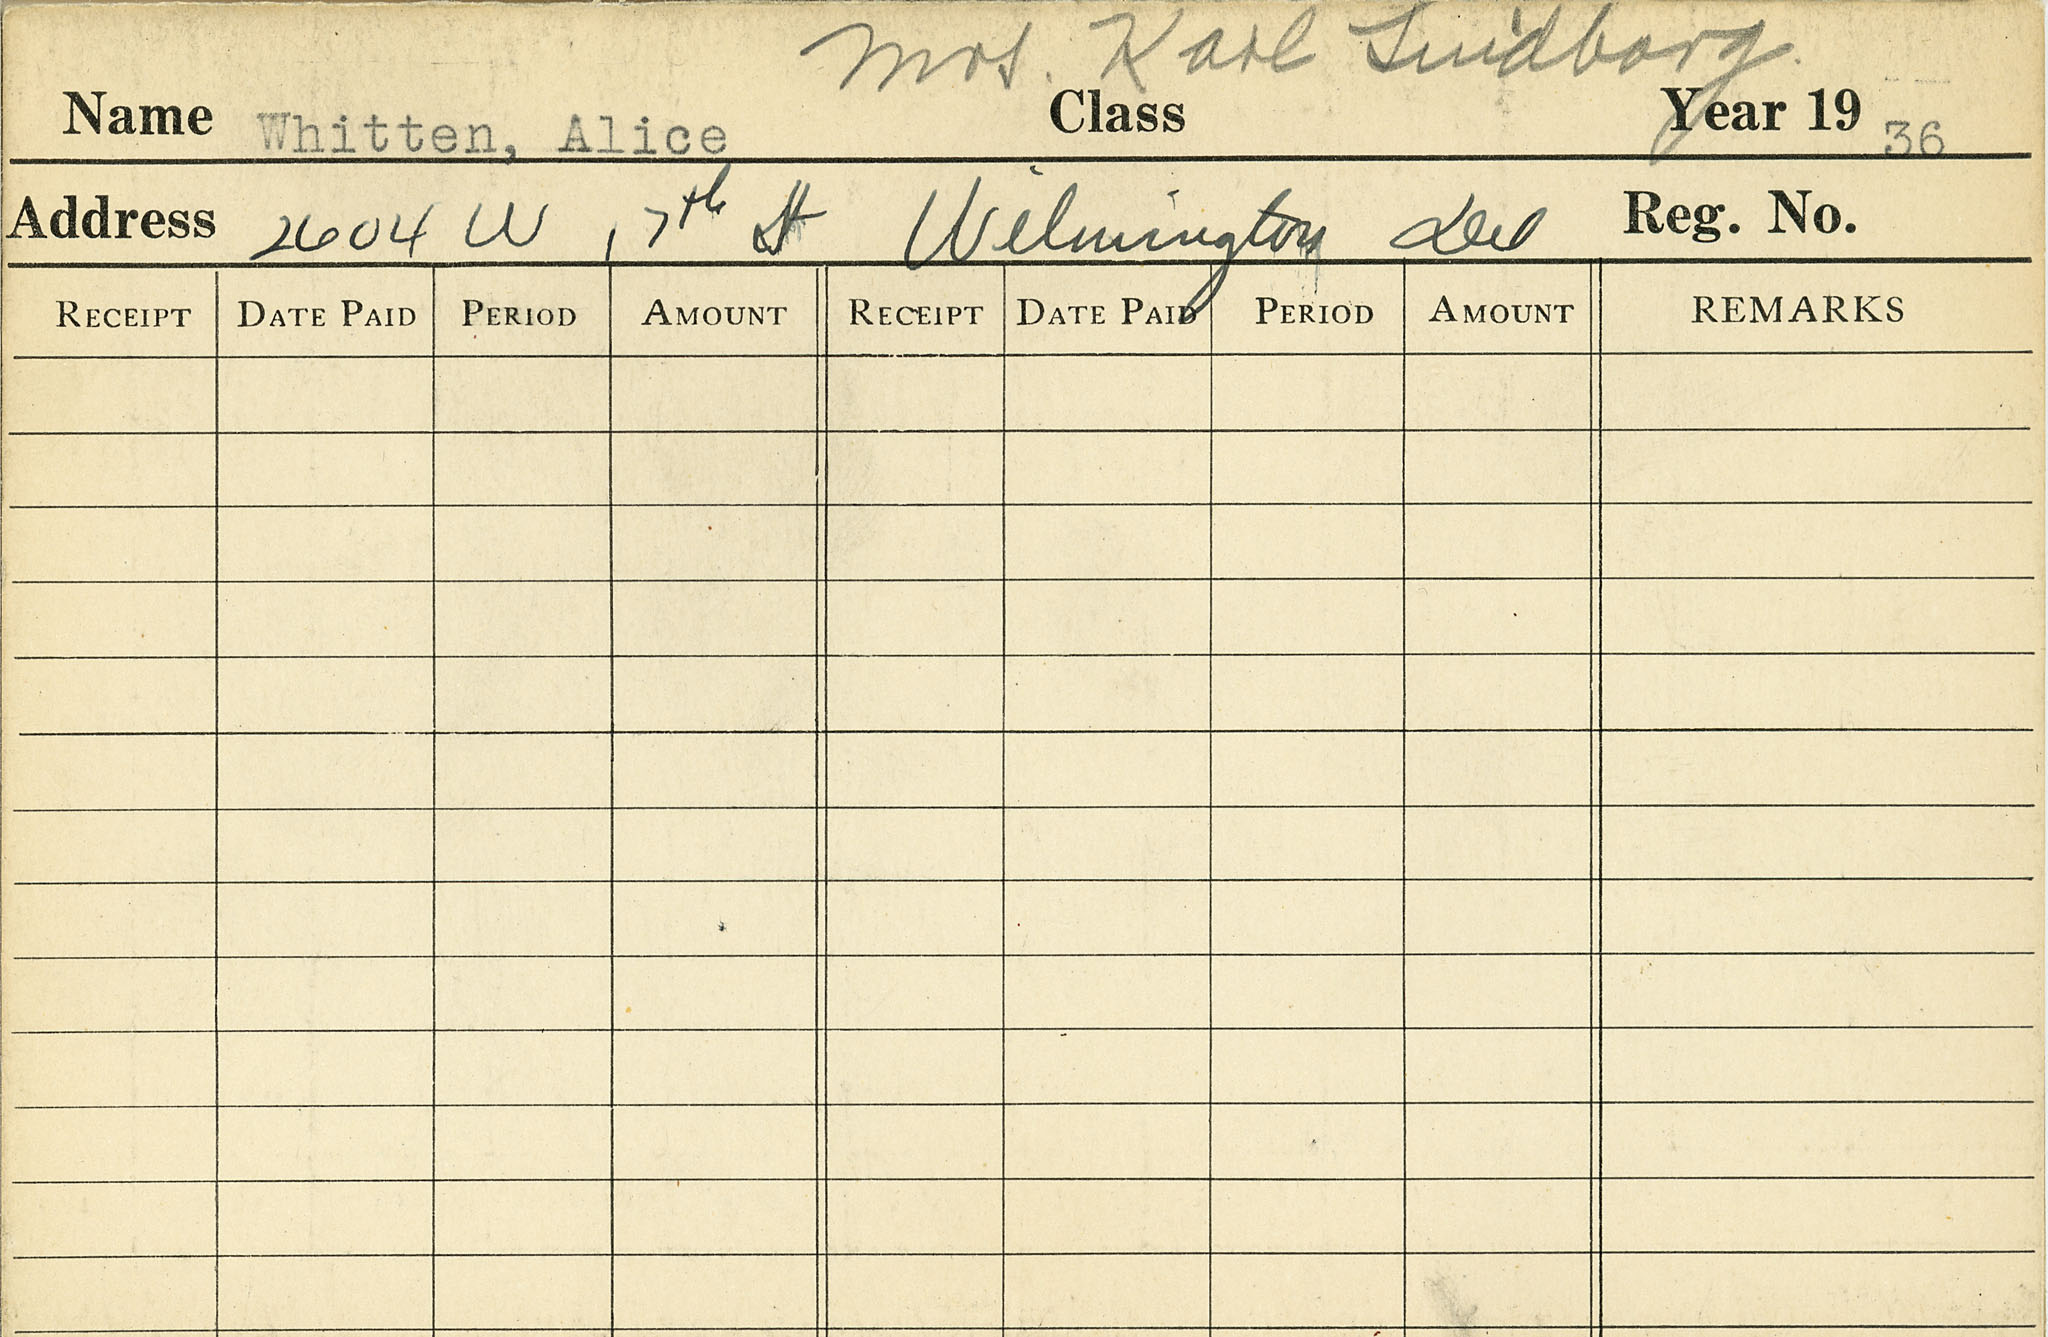 Mrs. Karl Lindborg.
Name Whitten, Alice Class Year 19 36
Address 2604 W 17th St Wilmington Del Reg. No.
RECEIPT DATE PAID PERIOD AMOUNT RECEIPT DATE PAID PERIOD AMOUNT REMARKS